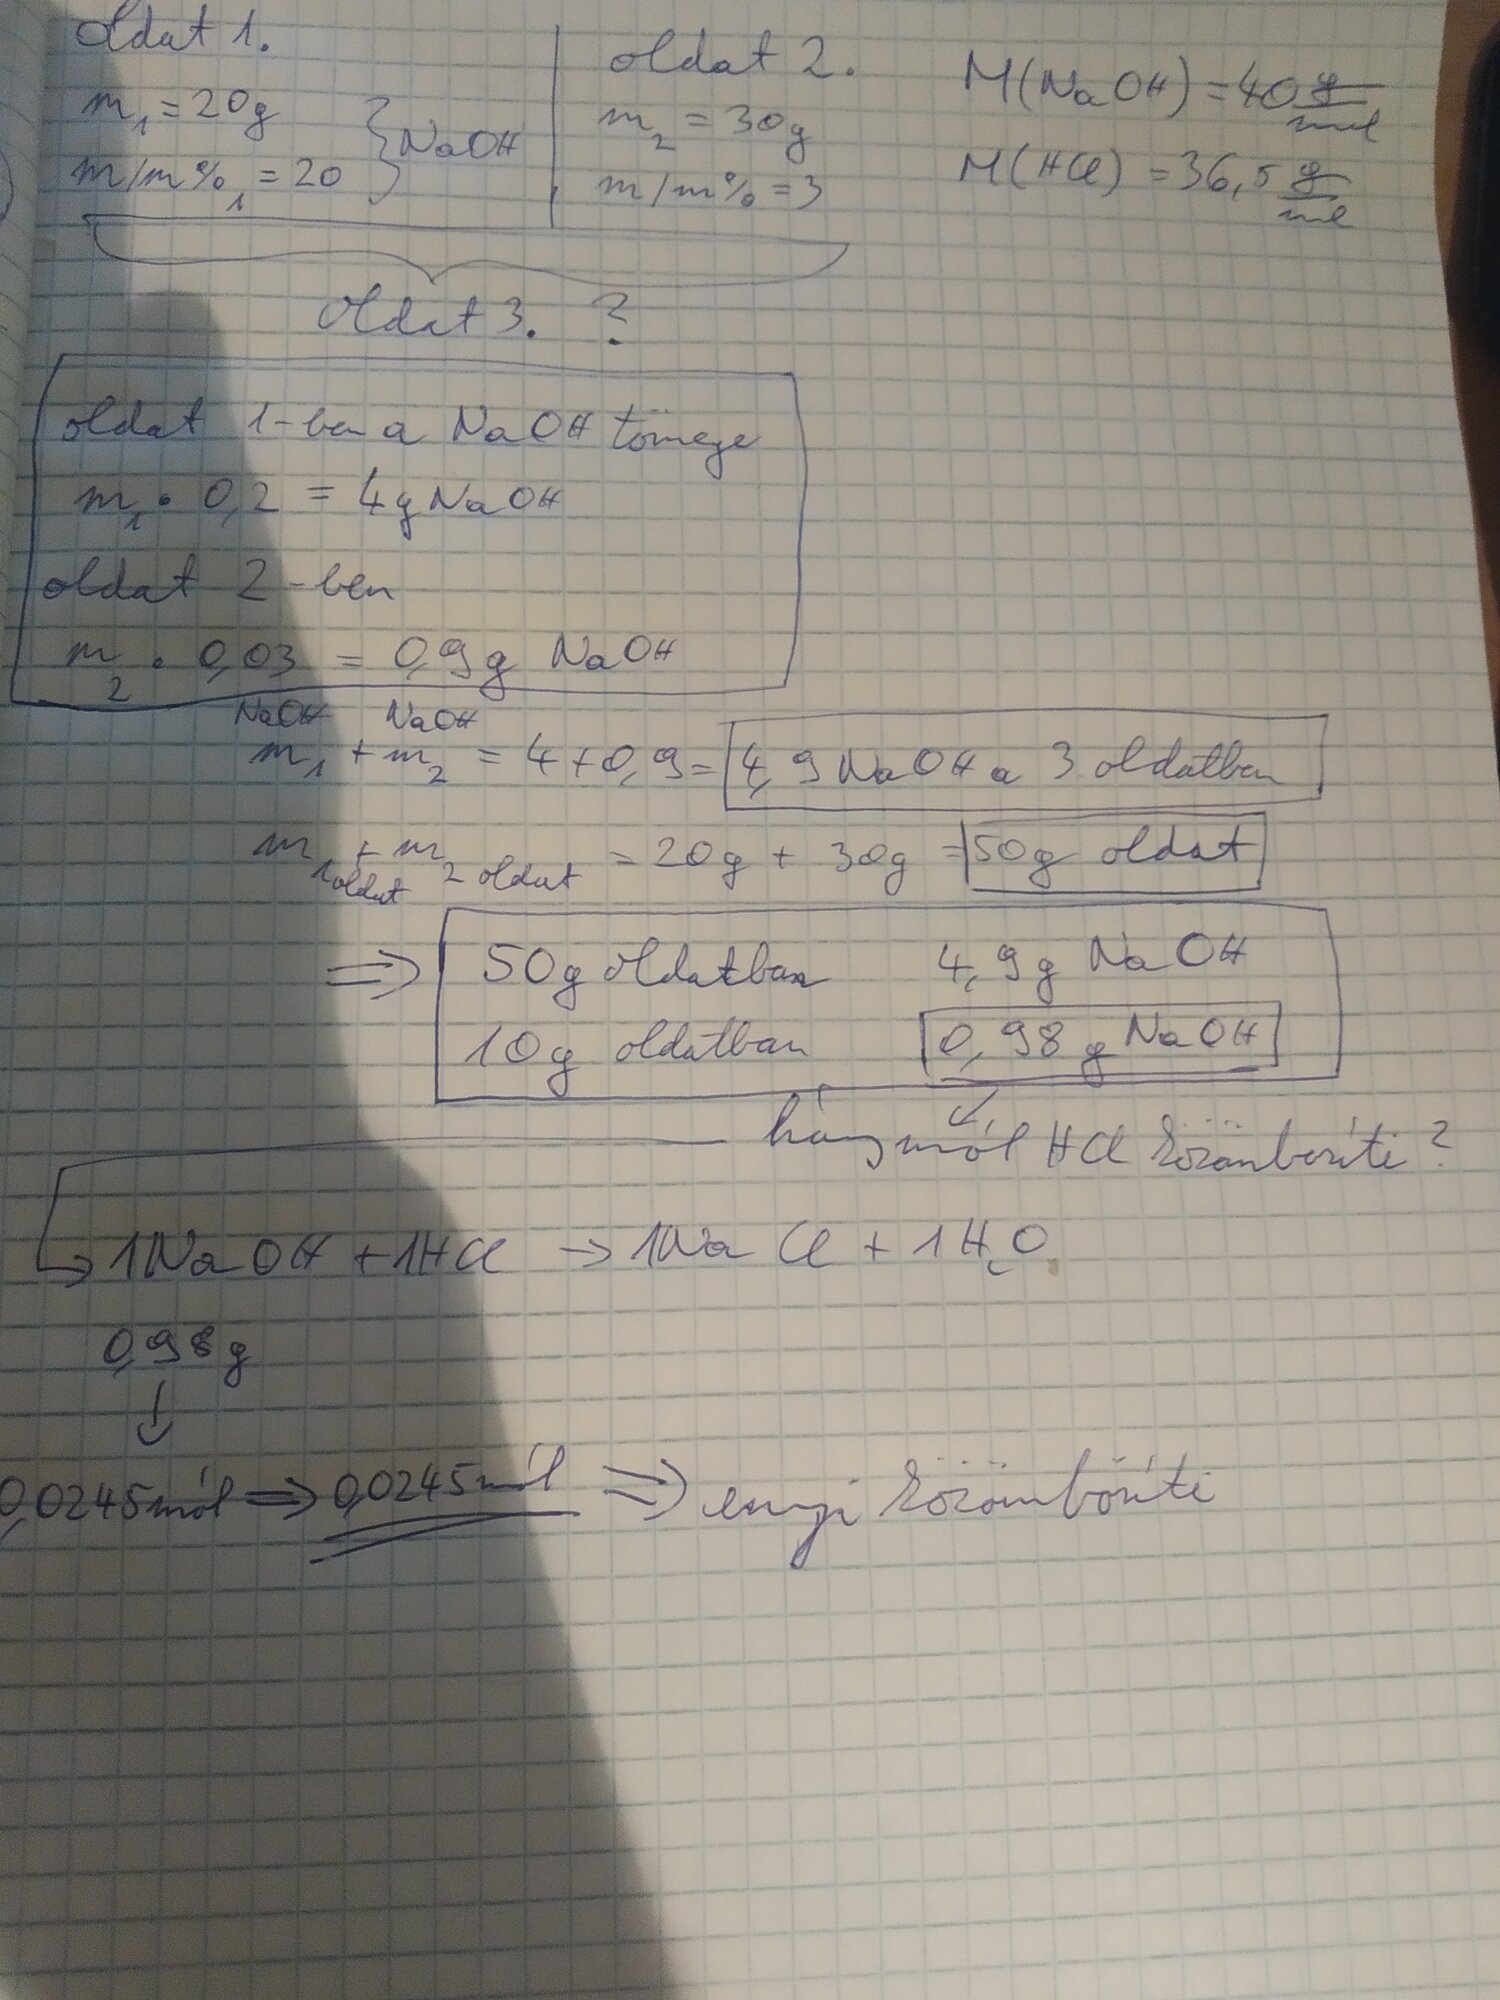 oldat 1.
m₁ = 20g
m/m%₁ = 20
} NaOH
oldat 2.
m₂ = 30g
m/m% = 3
M(NaOH) = 40 g/mol
M(HCl) = 36,5 g/mol
oldat 3. ?
oldat 1-ben a NaOH tömege
m₁ · 0,2 = 4g NaOH
oldat 2-ben
m₂ · 0,03 = 0,9g NaOH
NaOH NaOH
m₁ + m₂ = 4 + 0,9 = 4,9 NaOH a 3 oldatban
m₁ oldat + m₂ oldat = 20g + 30g = 50g oldat
⇒ 50g oldatban 4,9g NaOH
10g oldatban 0,98g NaOH
hány mól HCl közömbösíti?
→ 1NaOH + 1HCl → 1NaCl + 1H₂O
0,98g
↓
0,0245 mól ⇒ 0,0245 mól ⇒ ennyi közömbösíti